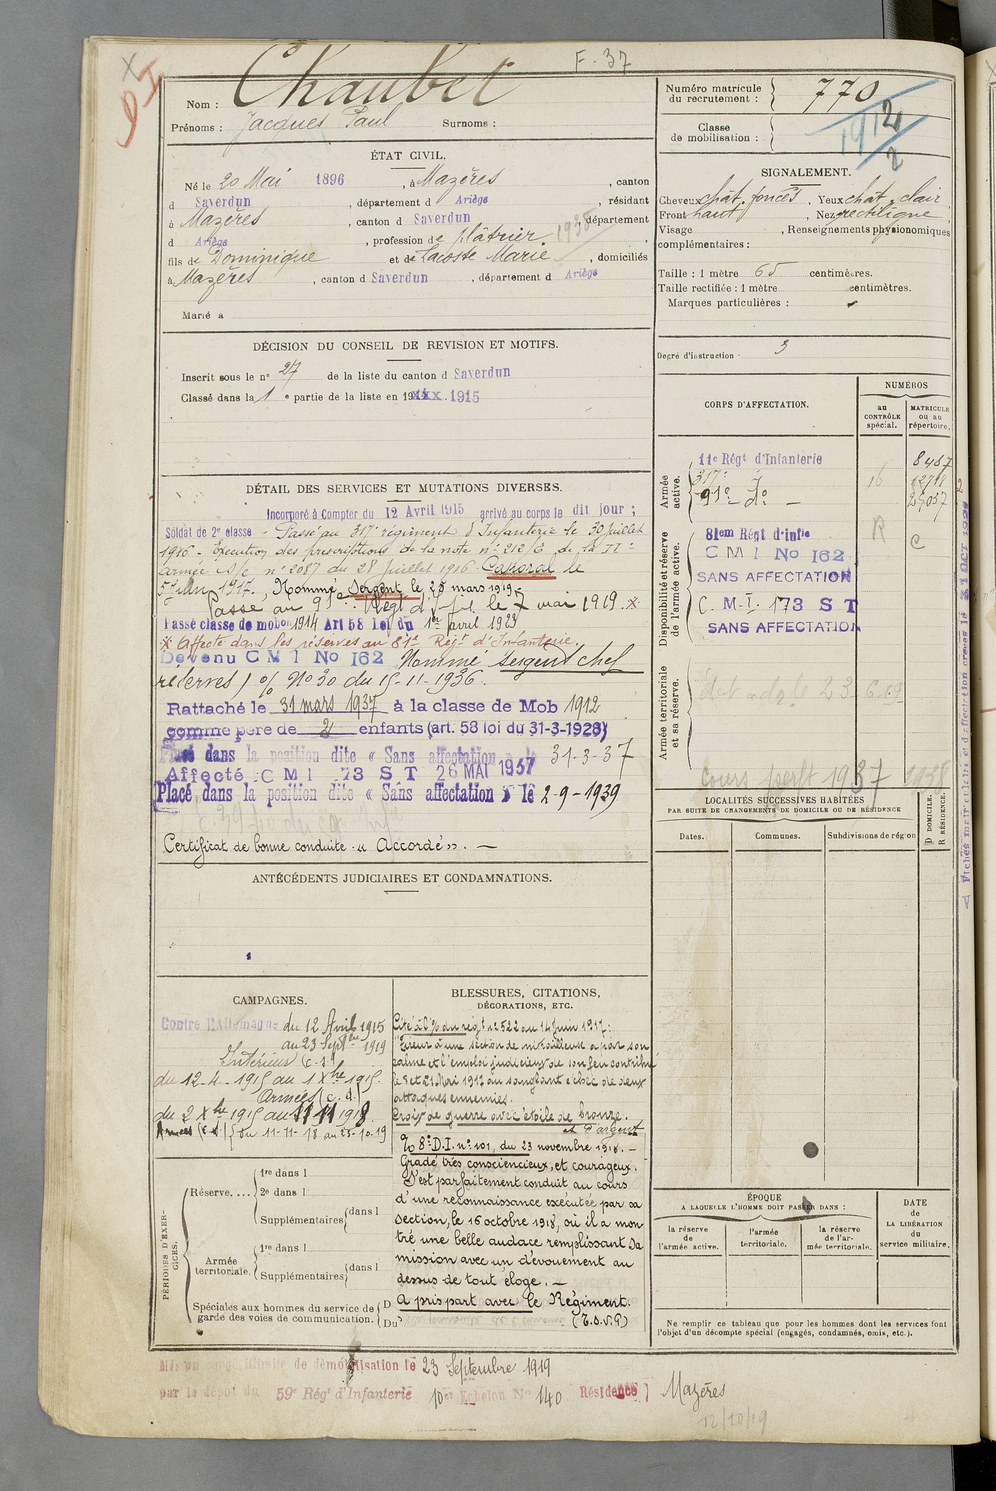 F. 37
Nom : Chaubet
Prénoms : Jacques Paul Surnoms :
Numéro matricule du recrutement : 770
Classe de mobilisation : 1912
ÉTAT CIVIL.
Né le 20 Mai 1896, à Mazères, canton
d Saverdun, département d Ariège, résidant
à Mazères, canton d Saverdun, département
d Ariège, profession de plâtrier
fils de Dominique et de Lacoste Marie, domiciliés
à Mazères, canton d Saverdun, département d Ariège
Marié à
SIGNALEMENT.
Cheveux chât. foncés, Yeux chât. clair
Front haut, Nez rectiligne
Visage , Renseignements physionomiques
complémentaires :
Taille : 1 mètre 65 centimètres.
Taille rectifiée : 1 mètre centimètres.
Marques particulières :
Degré d'instruction : 3
DÉCISION DU CONSEIL DE REVISION ET MOTIFS.
Inscrit sous le n° 27 de la liste du canton d Saverdun
Classé dans la 1e partie de la liste en 1915
DÉTAIL DES SERVICES ET MUTATIONS DIVERSES.
Incorporé à Compter du 12 Avril 1915 arrivé au corps le dit jour ;
Soldat de 2e classe - Passé au 317e régiment d'Infanterie le 30 juillet
1916 - Exécution des prescriptions de la note n° 212/C de la IIe
armée n° 2087 du 28 juillet 1916. Caporal le
1917. Nommé Sergent le 28 mars 1919.
Passé au 91e Régt d'Inf. le 7 mai 1919. x
Passé classe de mobon 1914 Art 58 Loi du 1er avril 1923
x Affecté dans les réserves au 81e Régt d'Infanterie.
Devenu C M I No 162 Nommé Sergent chef
réserves / % N° 30 du 15-11-1936.
Rattaché le 31 mars 1937 à la classe de Mob 1912
comme père de 2 enfants (art. 58 loi du 31-3-1928)
Placé dans la position dite « Sans affectation » le 31-3-37
Affecté C M I 173 S T 26 MAI 1937
Placé dans la position dite « Sans affectation » le 2-9-1939
Certificat de bonne conduite « Accordé ».
CORPS D'AFFECTATION.
NUMÉROS
au CONTRÔLE spécial.
MATRICULE ou au répertoire.
Armée active.
11e Régt d'Infanterie 8467
317e do 16
91e do 25057
Disponibilité et réserve de l'armée active.
81em Régt d'Infie
C M I No 162
SANS AFFECTATION
C. M. I. 173 S T
SANS AFFECTATION
Armée territoriale et sa réserve.
LOCALITÉS SUCCESSIVES HABITÉES
PAR SUITE DE CHANGEMENTS DE DOMICILE OU DE RÉSIDENCE
Dates. Communes. Subdivisions de région
D DOMICILE. R RÉSIDENCE.
ANTÉCÉDENTS JUDICIAIRES ET CONDAMNATIONS.
CAMPAGNES.
Contre l'Allemagne du 12 Avril 1915
au 23 Septbre 1919
Intérieur (c.s.)
du 12-4-1915 au 1 Xbre 1915.
Armées (c.d.)
du 2 Xbre 1915 au 11 11 1918
Armées (c.s.) du 11-11-18 au 23-10-19
BLESSURES, CITATIONS,
DÉCORATIONS, ETC.
Cité à l'% du régt n° 522 au 14 juin 1917 :
"Tireur à une section de mitrailleuse a par son
calme et l'emploi judicieux de son feu contribué
les 5 et 21 Mai 1917 au sanglant échec de deux
attaques ennemies.
Croix de guerre avec étoile de bronze.
et d'argent
% 8e D.I. n° 101, du 23 novembre 1918. -
Gradé très consciencieux, et courageux.
S'est parfaitement conduit au cours
d'une reconnaissance exécutée par sa
section, le 16 octobre 1918, où il a mon
tré une belle audace remplissant sa
mission avec un dévouement au
dessus de tout éloge. -
A pris part avec le Régiment.
(T.S.V.P)
PÉRIODES D'EXERCICES.
Réserve. ... 1re dans l
2e dans l
Supplémentaires dans l
Armée territoriale. 1re dans l
Supplémentaires dans l
Spéciales aux hommes du service de garde des voies de communication. D Du
ÉPOQUE
A LAQUELLE L'HOMME DOIT PASSER DANS :
la réserve de l'armée active.
l'armée territoriale.
la réserve de l'armée territoriale.
DATE de LA LIBÉRATION du service militaire.
Ne remplir ce tableau que pour les hommes dont les services font
l'objet d'un décompte spécial (engagés, condamnés, omis, etc.).
Mis en congé illimité de démobilisation le 23 Septembre 1919
par le dépôt du 59e Régt d'Infanterie 10er Echelon No 140 Résidence Mazères
12/10/19